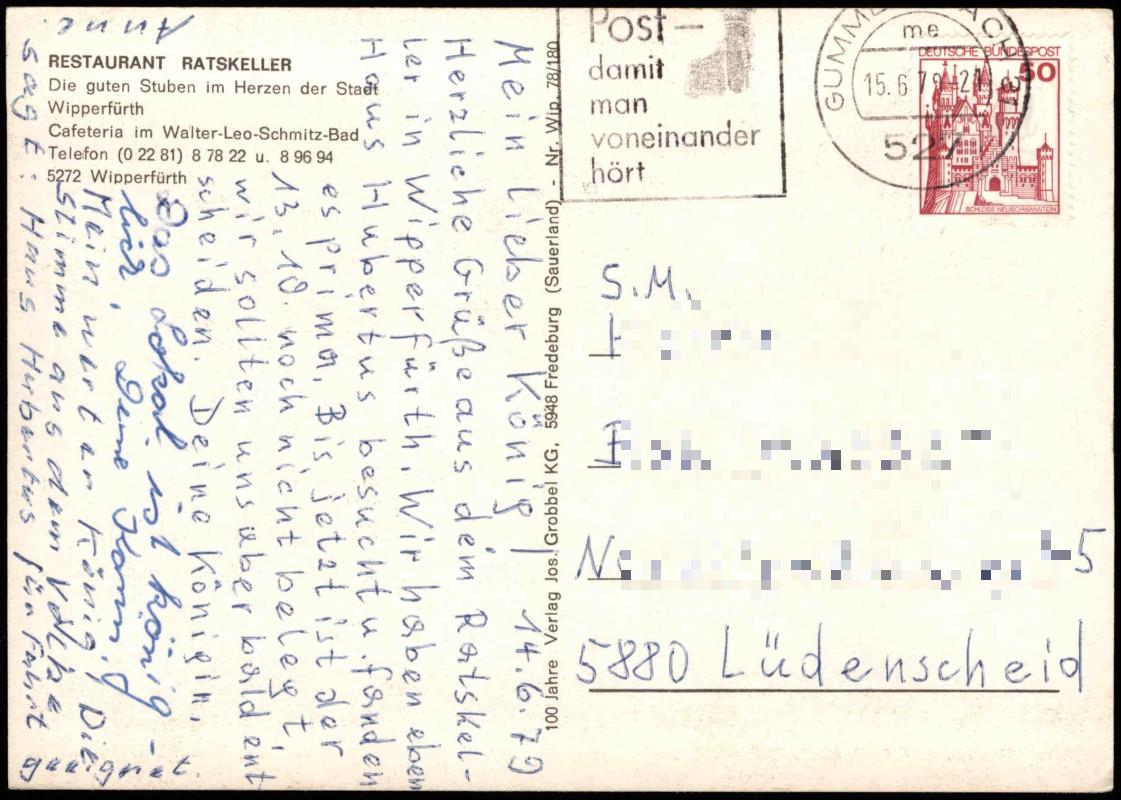 RESTAURANT RATSKELLER
Die guten Stuben im Herzen der Stadt
Wipperfürth
Cafeteria im Walter-Leo-Schmitz-Bad
Telefon (0 22 81) 8 78 22 u. 8 96 94
5272 Wipperfürth
Mein lieber König! 14.6.79
Herzliche Grüße aus dem Ratskel-
ler in Wipperfürth. Wir haben eben
Haus Hubertus besucht u. fanden
es prima. Bis jetzt ist der
13.10. noch nicht belegt,
wir sollten uns aber bald ent
scheiden. Deine Königin.
Das Lokal ist könig-
lich, Deine
Mein werter König! Die
Stimme aus dem Volke
sagt: Haus Hubertus für Fahrt
geeignet.
Anne.
100 Jahre Verlag Jos. Grobbel KG, 5948 Fredeburg (Sauerland) - Nr. Wip. 78/180
Post-
damit
man
voneinander
hört
GUMMERSBACH
me
15.6.79-21
527
DEUTSCHE BUNDESPOST
50
SCHLOSS NEUSCHWANSTEIN
S.M.
5
5880 Lüdenscheid